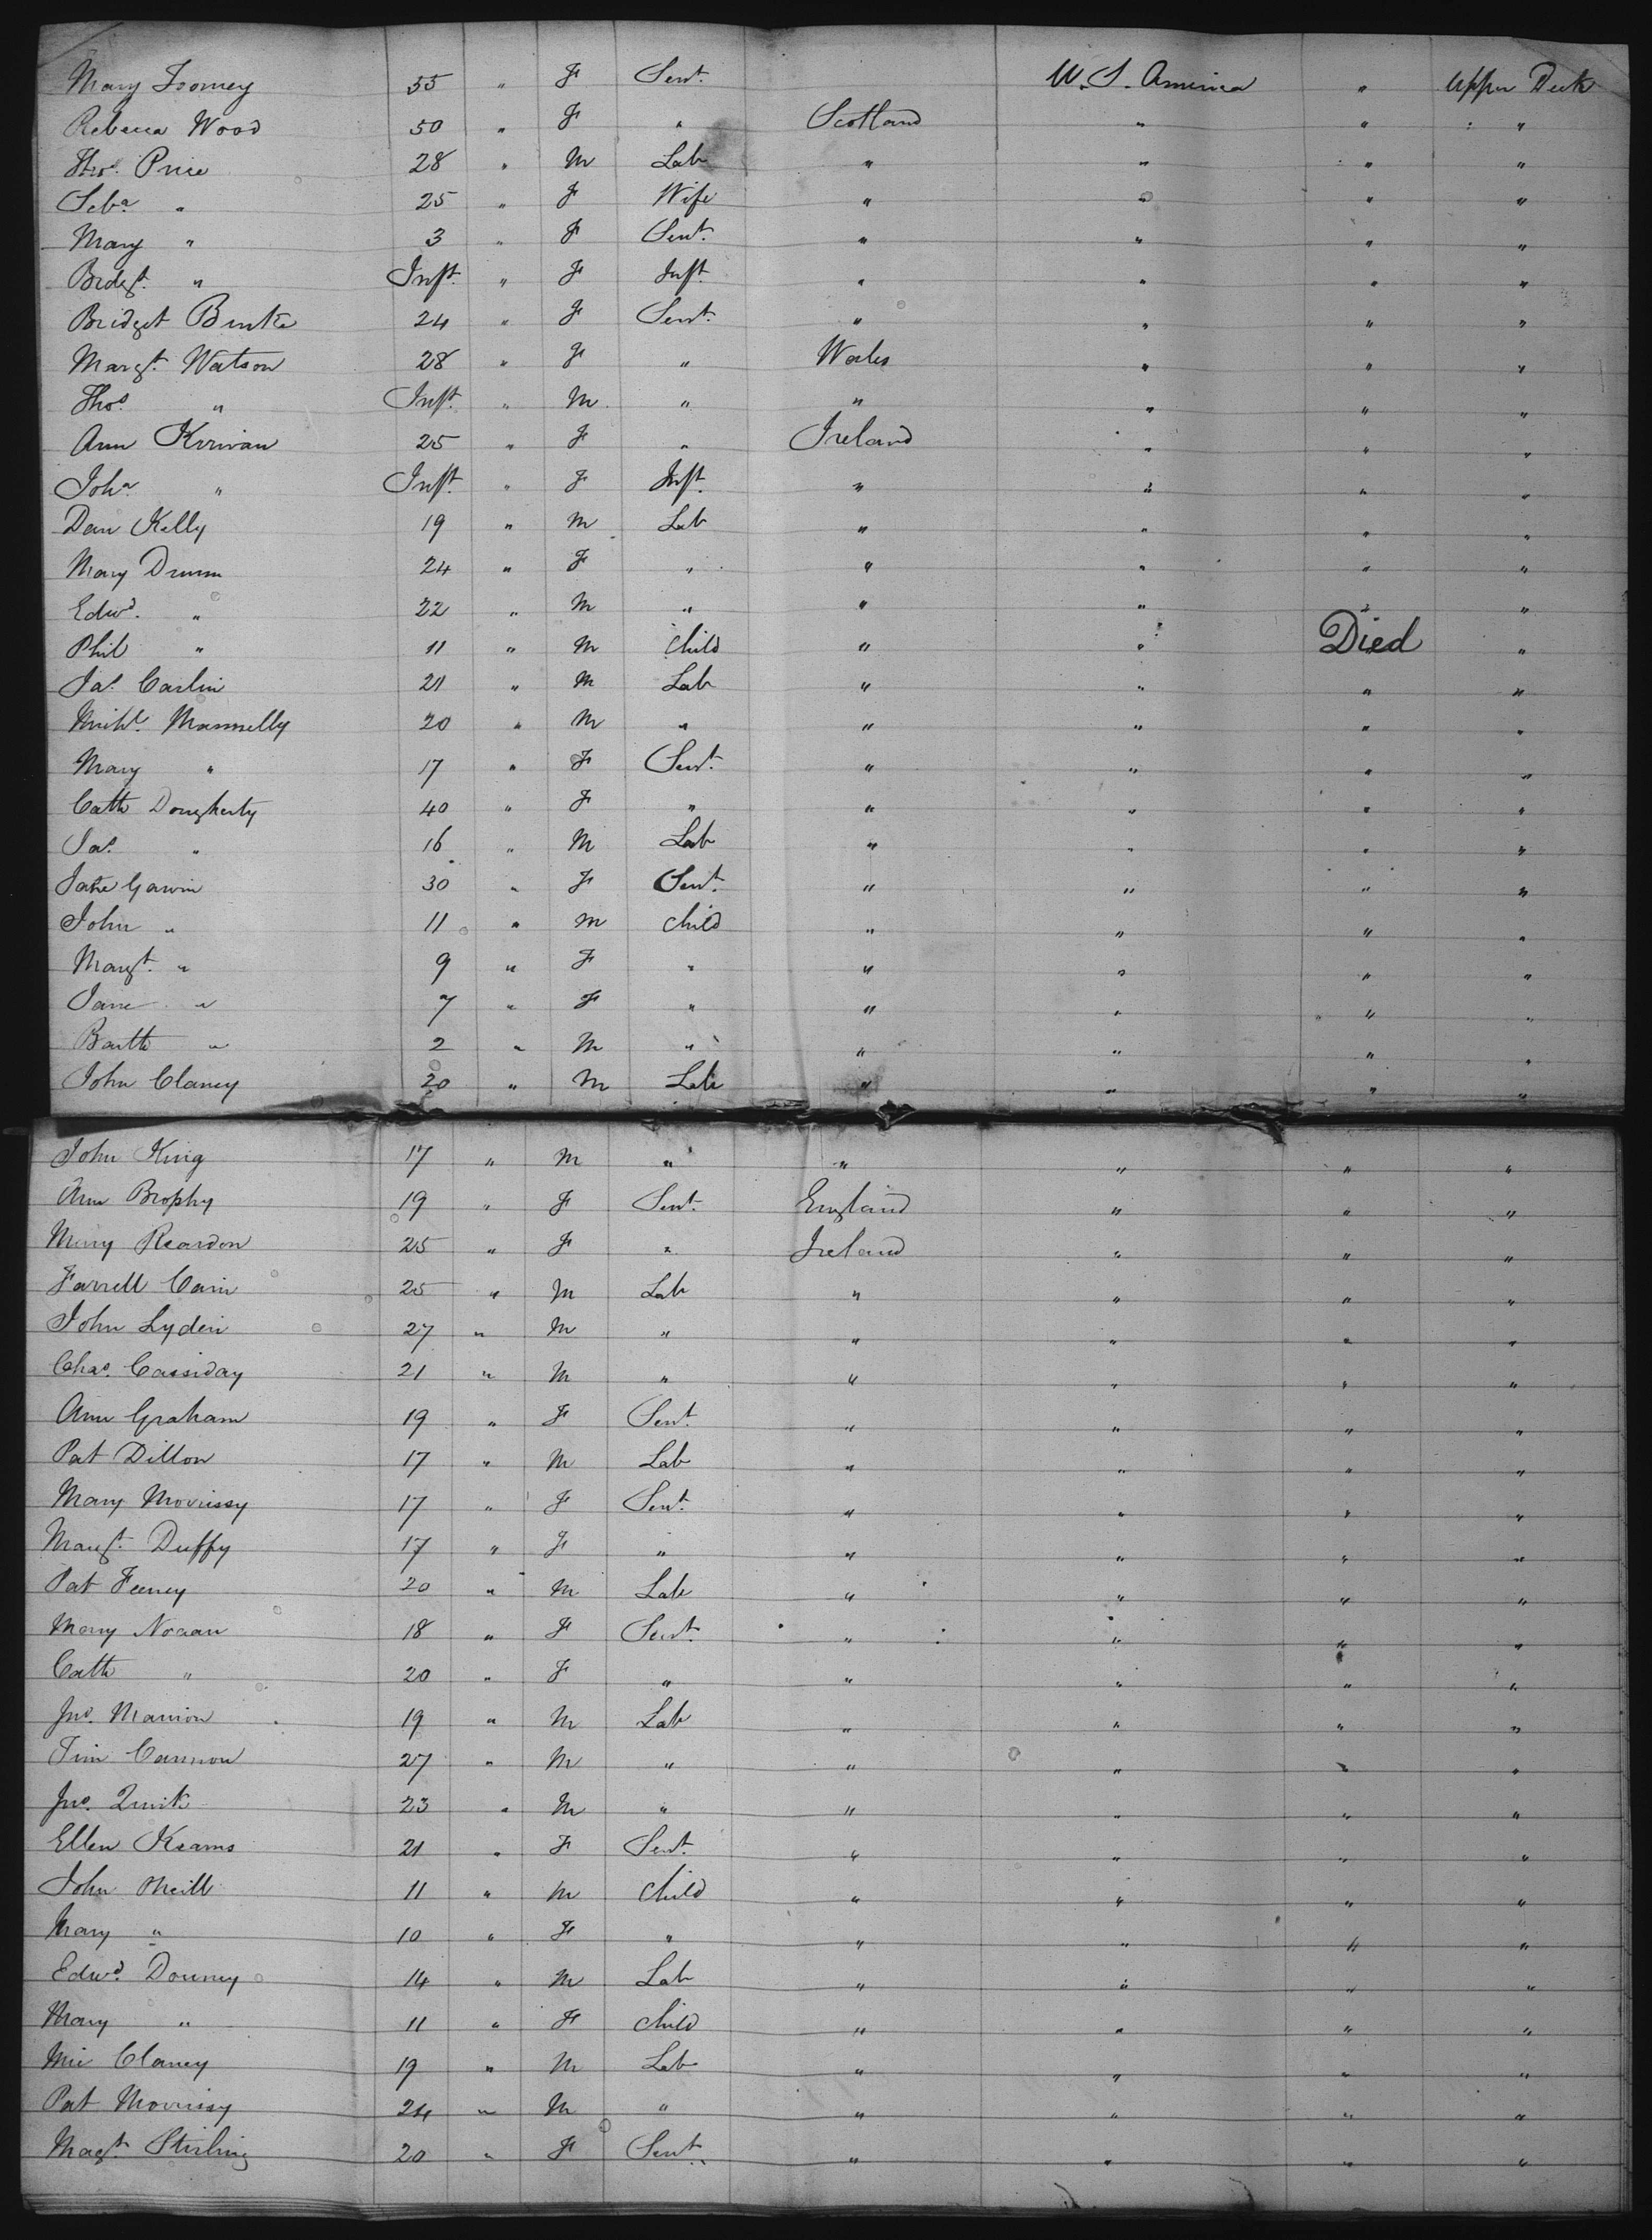 Mary Toomey 55 " F Servt. U.S. America " Upper Deck
Rebecca Wood 50 " F " Scotland " " "
Thos. Price 28 " M Lab " " " "
Seba " 25 " F Wife " " " "
Mary " 3 " F Servt. " " " "
Bridgt. " Inft. " F Inft. " " " "
Bridget Burke 24 " F Servt. " " " "
Margt. Watson 28 " F " Wales " " "
Thos. " Inft. " M " " " " "
Ann Kirwan 25 " F " Ireland " " "
Joha " Inft. " F Inft. " " " "
Dan Kelly 19 " M Lab " " " "
Mary Drum 24 " F " " " " "
Edwd. " 22 " M " " " " "
Phil " 11 " M Child " " Died "
Jas. Carlin 21 " M Lab " " " "
Michl. Mannelly 20 " M " " " " "
Mary " 17 " F Servt. " " " "
Cath Dougherty 40 " F " " " " "
Jas. " 16 " M Lab " " " "
Jane Gavin 30 " F Servt. " " " "
John " 11 " M Child " " " "
Margt. " 9 " F " " " " "
Jane " 7 " F " " " " "
Barth " 2 " M " " " " "
John Clancy 20 " M Lab " " " "
John King 17 " M " " " " "
Ann Brophy 19 " F Servt. England " " "
Mary Reardon 25 " F " Ireland " " "
Farrell Cain 25 " M Lab " " " "
John Lyden 27 " M " " " " "
Chas. Cassiday 21 " M " " " " "
Ann Graham 19 " F Servt. " " " "
Pat Dillon 17 " M Lab " " " "
Mary Morrissy 17 " F Servt. " " " "
Margt. Duffy 17 " F " " " " "
Pat Feeney 20 " M Lab " " " "
Mary Noaan 18 " F Servt. " " " "
Cath " 20 " F " " " " "
Jno. Manion 19 " M Lab " " " "
Tim Cannon 27 " M " " " " "
Jno. Quirk 23 " M " " " " "
Ellen Keams 21 " F Servt. " " " "
John ONeill 11 " M Child " " " "
Mary " 10 " F " " " " "
Edwd. Downey 14 " M Lab " " " "
Mary " 11 " F Child " " " "
Mic Clancy 19 " M Lab " " " "
Pat Morrissy 24 " M " " " " "
Magt. Stirling 20 " F Servt. " " " "